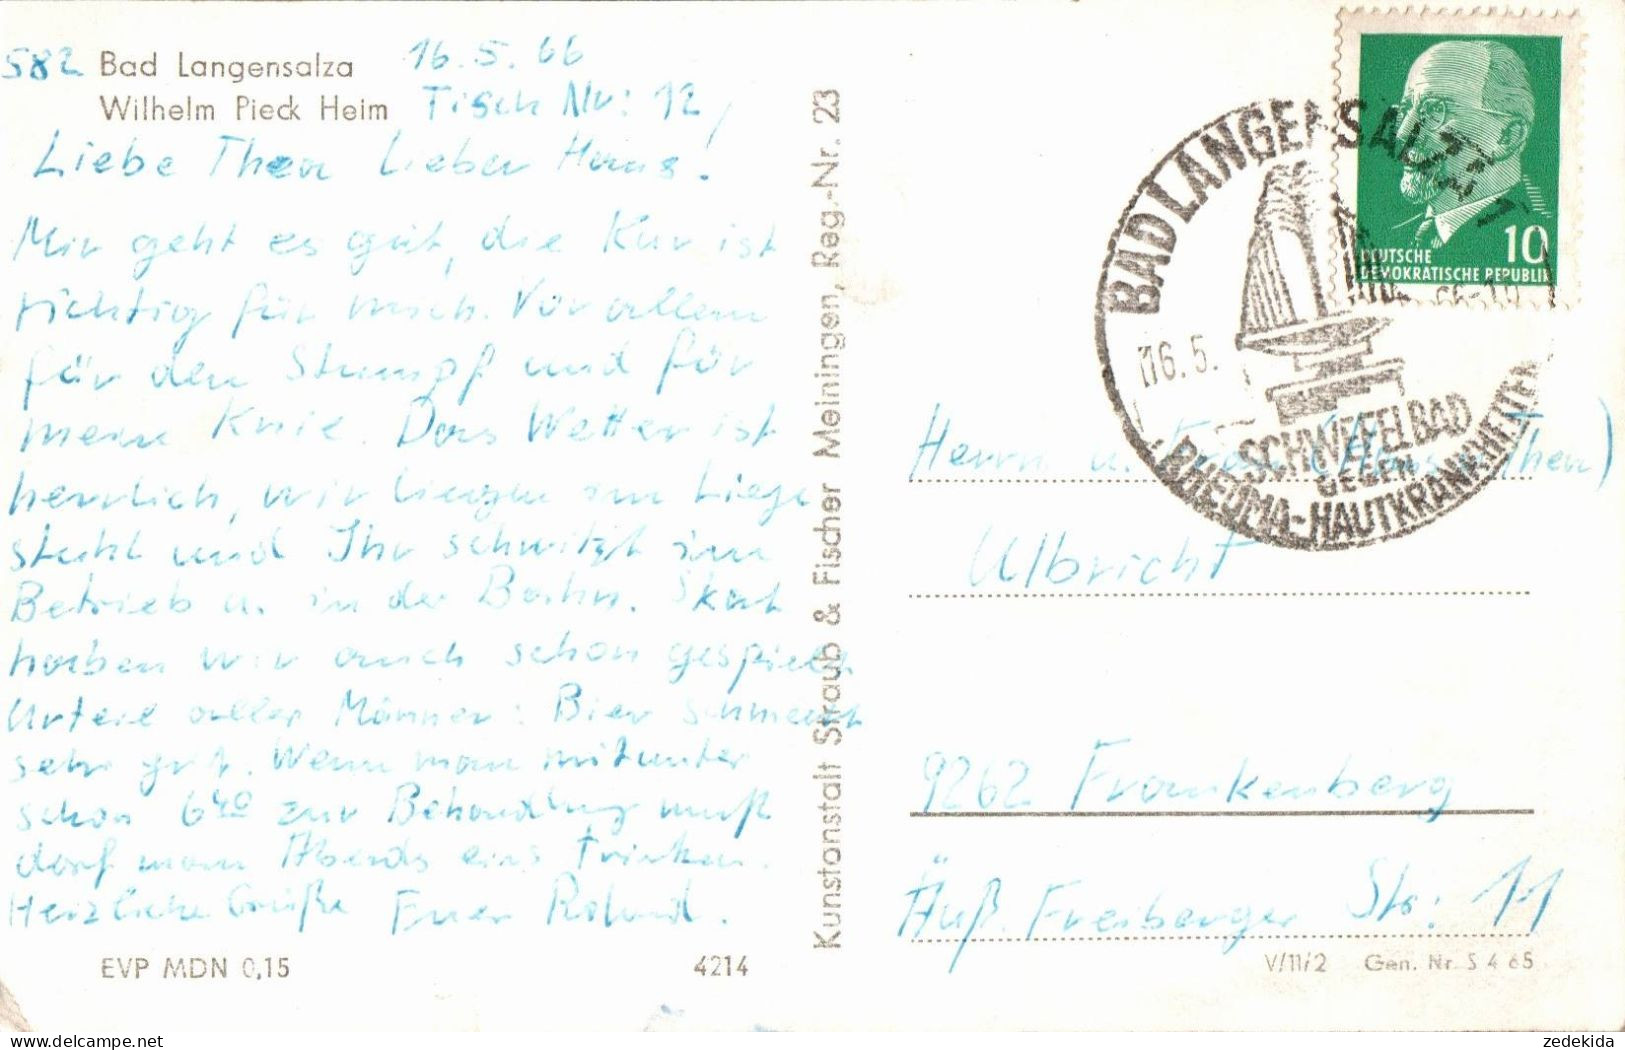 582 Bad Langensalza 16.5.66
Wilhelm Pieck Heim Tisch Nr: 12,
Liebe Thea Lieber Hans!
Mir geht es gut, die Kur ist
richtig für mich. Vor allem
für den Stumpf und für
mein Knie. Das Wetter ist
herrlich, wir liegen im Liege
stuhl und Ihr schwitzt im
Betrieb u. in der Bahn. Skat
haben wir auch schon gespielt
Urteil aller Männer: Bier schmeckt
sehr gut. Wenn man mitunter
schon 6⁴⁰ zur Behandlung muß
darf man Abends eins trinken.
Herzliche Grüße Euer Roland.
EVP MDN 0,15 4214
Kunstanstalt Straub & Fischer Meiningen, Reg.-Nr. 23
10
DEUTSCHE
DEMOKRATISCHE REPUBLIK
BAD LANGENSALZA
16.5.
SCHWEFELBAD
GEGEN
RHEUMA-HAUTKRANKHEITEN
Herrn u. Frau (Hans u. Thea)
Ulbricht
9262 Frankenberg
Äuß. Freiberger Str: 11
V/11/2 Gen. Nr. S 4 65
zedekida